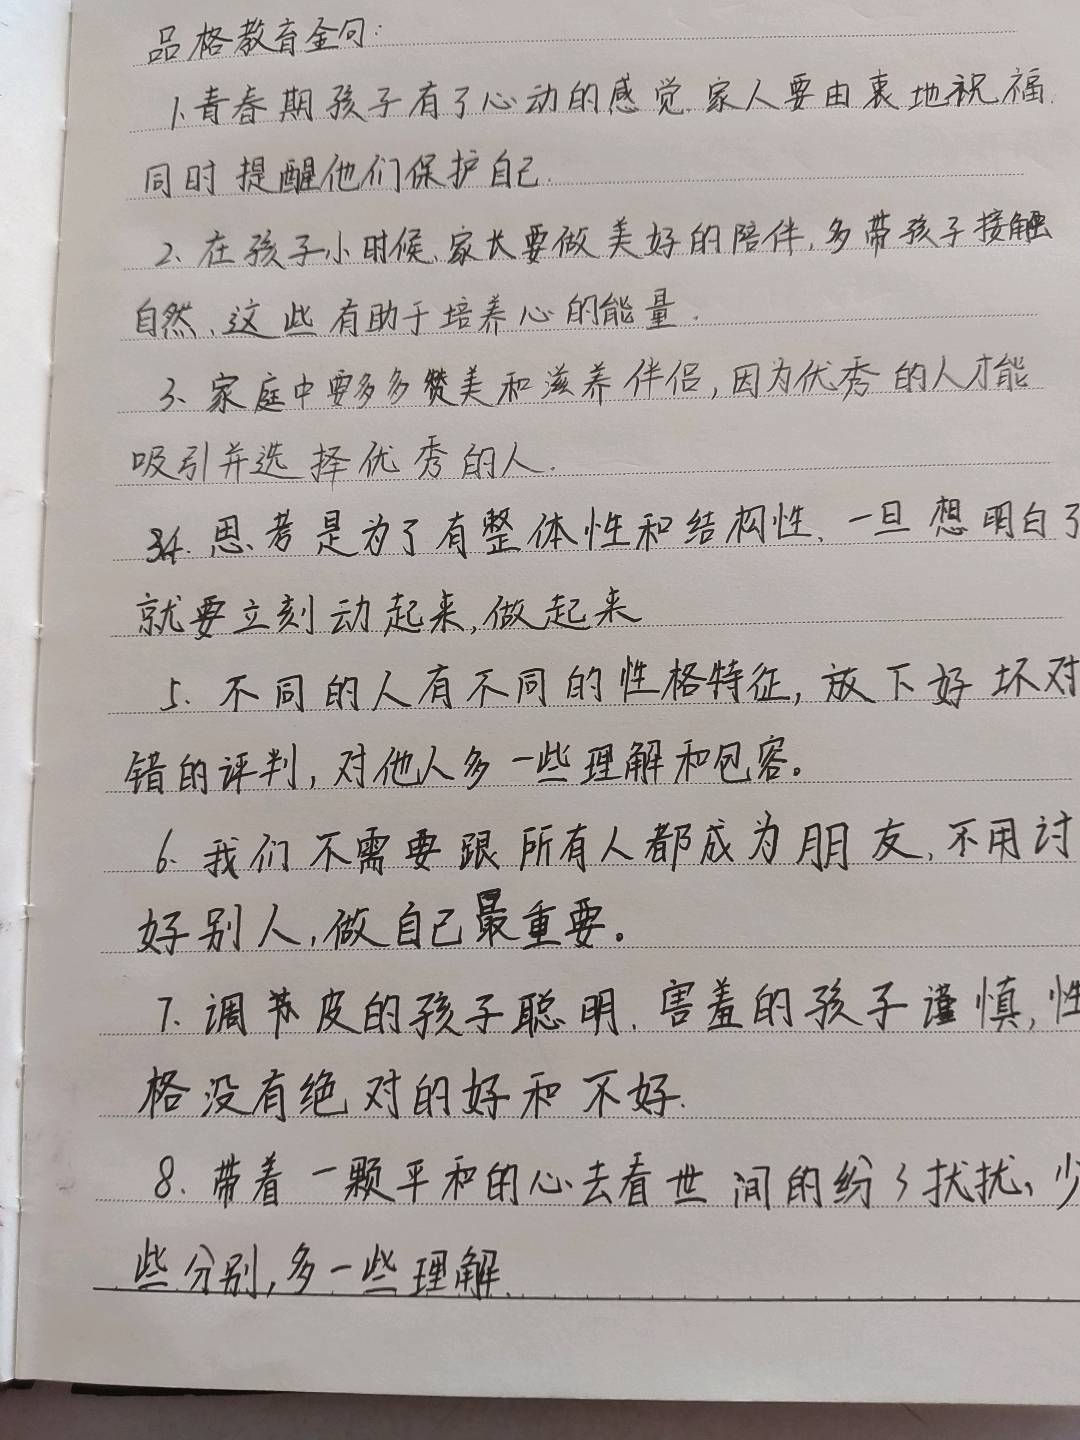 品格教育金句:
1、青春期孩子有了心动的感觉.家人要由衷地祝福.
同时提醒他们保护自己.
2、在孩子小时候、家长要做美好的陪伴,多带孩子接触
自然、这些有助于培养心的能量.
3、家庭中要多多赞美和滋养伴侣,因为优秀的人才能
吸引并选择优秀的人.
4.思考是为了有整体性和结构性、一旦想明白了
就要立刻动起来,做起来
5.不同的人有不同的性格特征,放下好坏对
错的评判,对他人多一些理解和包容。
6.我们不需要跟所有人都成为朋友,不用讨
好别人,做自己最重要。
7.调皮的孩子聪明.害羞的孩子谨慎,性
格没有绝对的好和不好.
8.带着一颗平和的心去看世间的纷々扰扰、少
些分别,多一些理解.